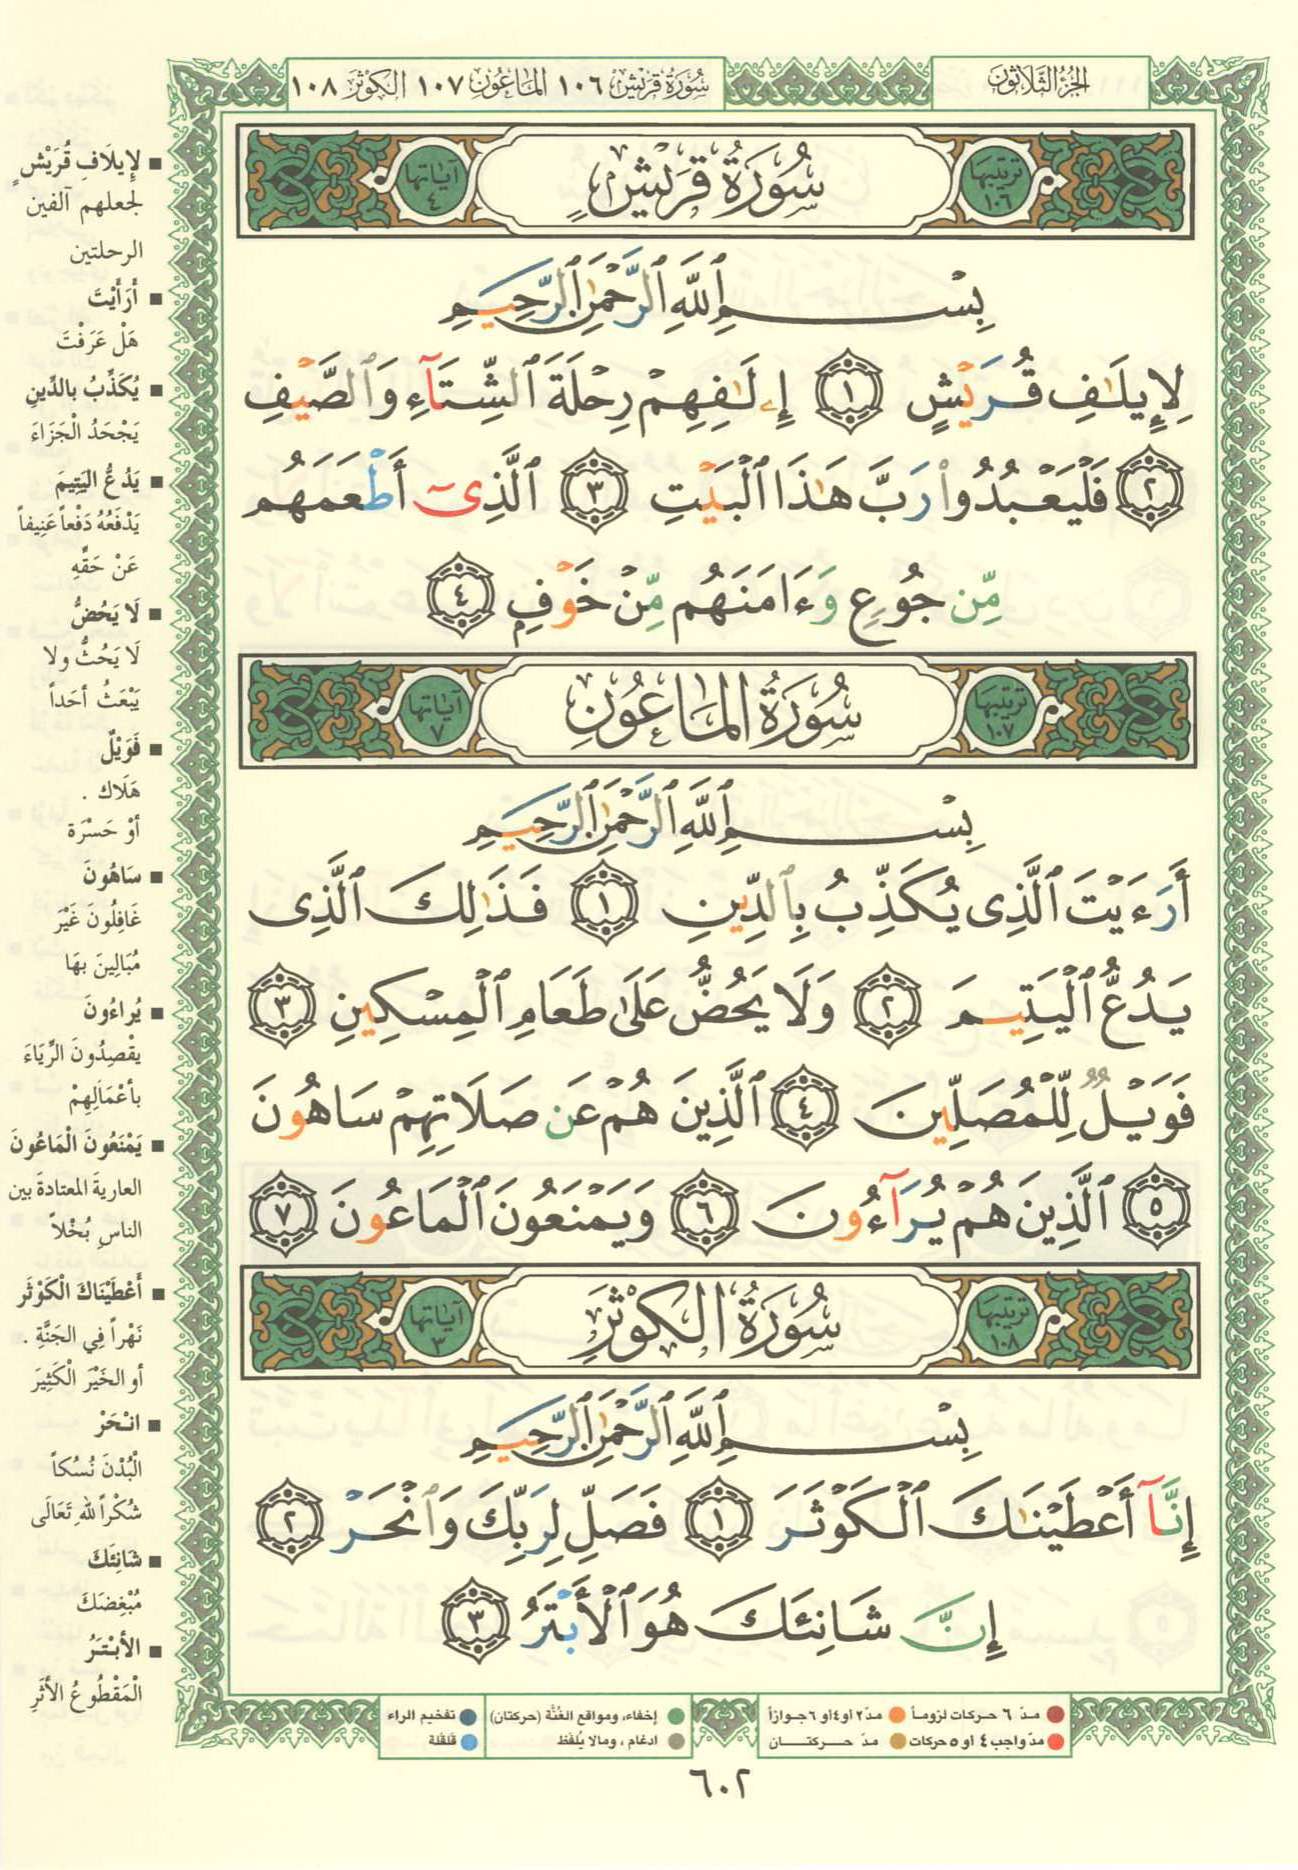 الجزء الثلاثون
سورة قريش ١٠٦ الماعون ١٠٧ الكوثر ١٠٨
ترتيبها ١٠٦ سُورَةُ قُرَيْشٍ آياتها ٤
بِسْمِ ٱللَّهِ ٱلرَّحْمَٰنِ ٱلرَّحِيمِ
لِإِيلَٰفِ قُرَيْشٍ ١ إِۦلَٰفِهِمْ رِحْلَةَ ٱلشِّتَآءِ وَٱلصَّيْفِ
٢ فَلْيَعْبُدُوا۟ رَبَّ هَٰذَا ٱلْبَيْتِ ٣ ٱلَّذِىٓ أَطْعَمَهُم
مِّن جُوعٍ وَءَامَنَهُم مِّنْ خَوْفٍ ٤
ترتيبها ١٠٧ سُورَةُ المَاعُونِ آياتها ٧
بِسْمِ ٱللَّهِ ٱلرَّحْمَٰنِ ٱلرَّحِيمِ
أَرَءَيْتَ ٱلَّذِى يُكَذِّبُ بِٱلدِّينِ ١ فَذَٰلِكَ ٱلَّذِى
يَدُعُّ ٱلْيَتِيمَ ٢ وَلَا يَحُضُّ عَلَىٰ طَعَامِ ٱلْمِسْكِينِ ٣
فَوَيْلٌ لِّلْمُصَلِّينَ ٤ ٱلَّذِينَ هُمْ عَن صَلَاتِهِمْ سَاهُونَ
٥ ٱلَّذِينَ هُمْ يُرَآءُونَ ٦ وَيَمْنَعُونَ ٱلْمَاعُونَ ٧
ترتيبها ١٠٨ سُورَةُ الكَوْثَرِ آياتها ٣
بِسْمِ ٱللَّهِ ٱلرَّحْمَٰنِ ٱلرَّحِيمِ
إِنَّآ أَعْطَيْنَٰكَ ٱلْكَوْثَرَ ١ فَصَلِّ لِرَبِّكَ وَٱنْحَرْ ٢
إِنَّ شَانِئَكَ هُوَ ٱلْأَبْتَرُ ٣
▪ لِإيلَافِ قُرَيْشٍ
لجعلهم آلفين
الرحلتين
▪ أَرَأَيْتَ
هَلْ عَرَفْتَ
▪ يُكَذِّبُ بالدِّينِ
يَجْحَدُ الْجَزَاءَ
▪ يَدُعُّ اليَتِيمَ
يَدْفَعُهُ دَفْعاً عَنِيفاً
عَنْ حَقِّهِ
▪ لَا يَحُضُّ
لَا يَحُثُّ ولا
يَبْعَثُ أحَداً
▪ فَوَيْلٌ
هَلَاك .
أوْ حَسْرَة
▪ سَاهُونَ
غَافِلُونَ غَيْرَ
مُبَالِينَ بهَا
▪ يُراءُونَ
يقْصِدُونَ الرِّيَاءَ
بأعْمَالِهِمْ
▪ يَمْنَعُونَ الْمَاعُونَ
العارية المعتادة بين
الناسِ بُخْلاً
▪ أَعْطَيْنَاكَ الْكَوْثَر
نَهْراً فِي الجَنَّةِ .
أو الخَيْرَ الْكَثِيرَ
▪ انْحَرْ
الْبُدْنَ نُسُكاً
شُكْراً للهِ تَعَالَى
▪ شَانِئَكَ
مُبْغِضَكَ
▪ الأَبْتَرُ
الْمَقْطُوعُ الأَثَرِ
مدّ ٦ حركات لزوماً مدّ ٢ او ٤ او ٦ جوازاً
مدّ واجب ٤ او ٥ حركات مدّ حركتان
إخفاء، ومواقع الغُنَّة (حركتان)
ادغام ، ومالا يُلفَظ
تفخيم الراء
قلقلة
٦٠٢